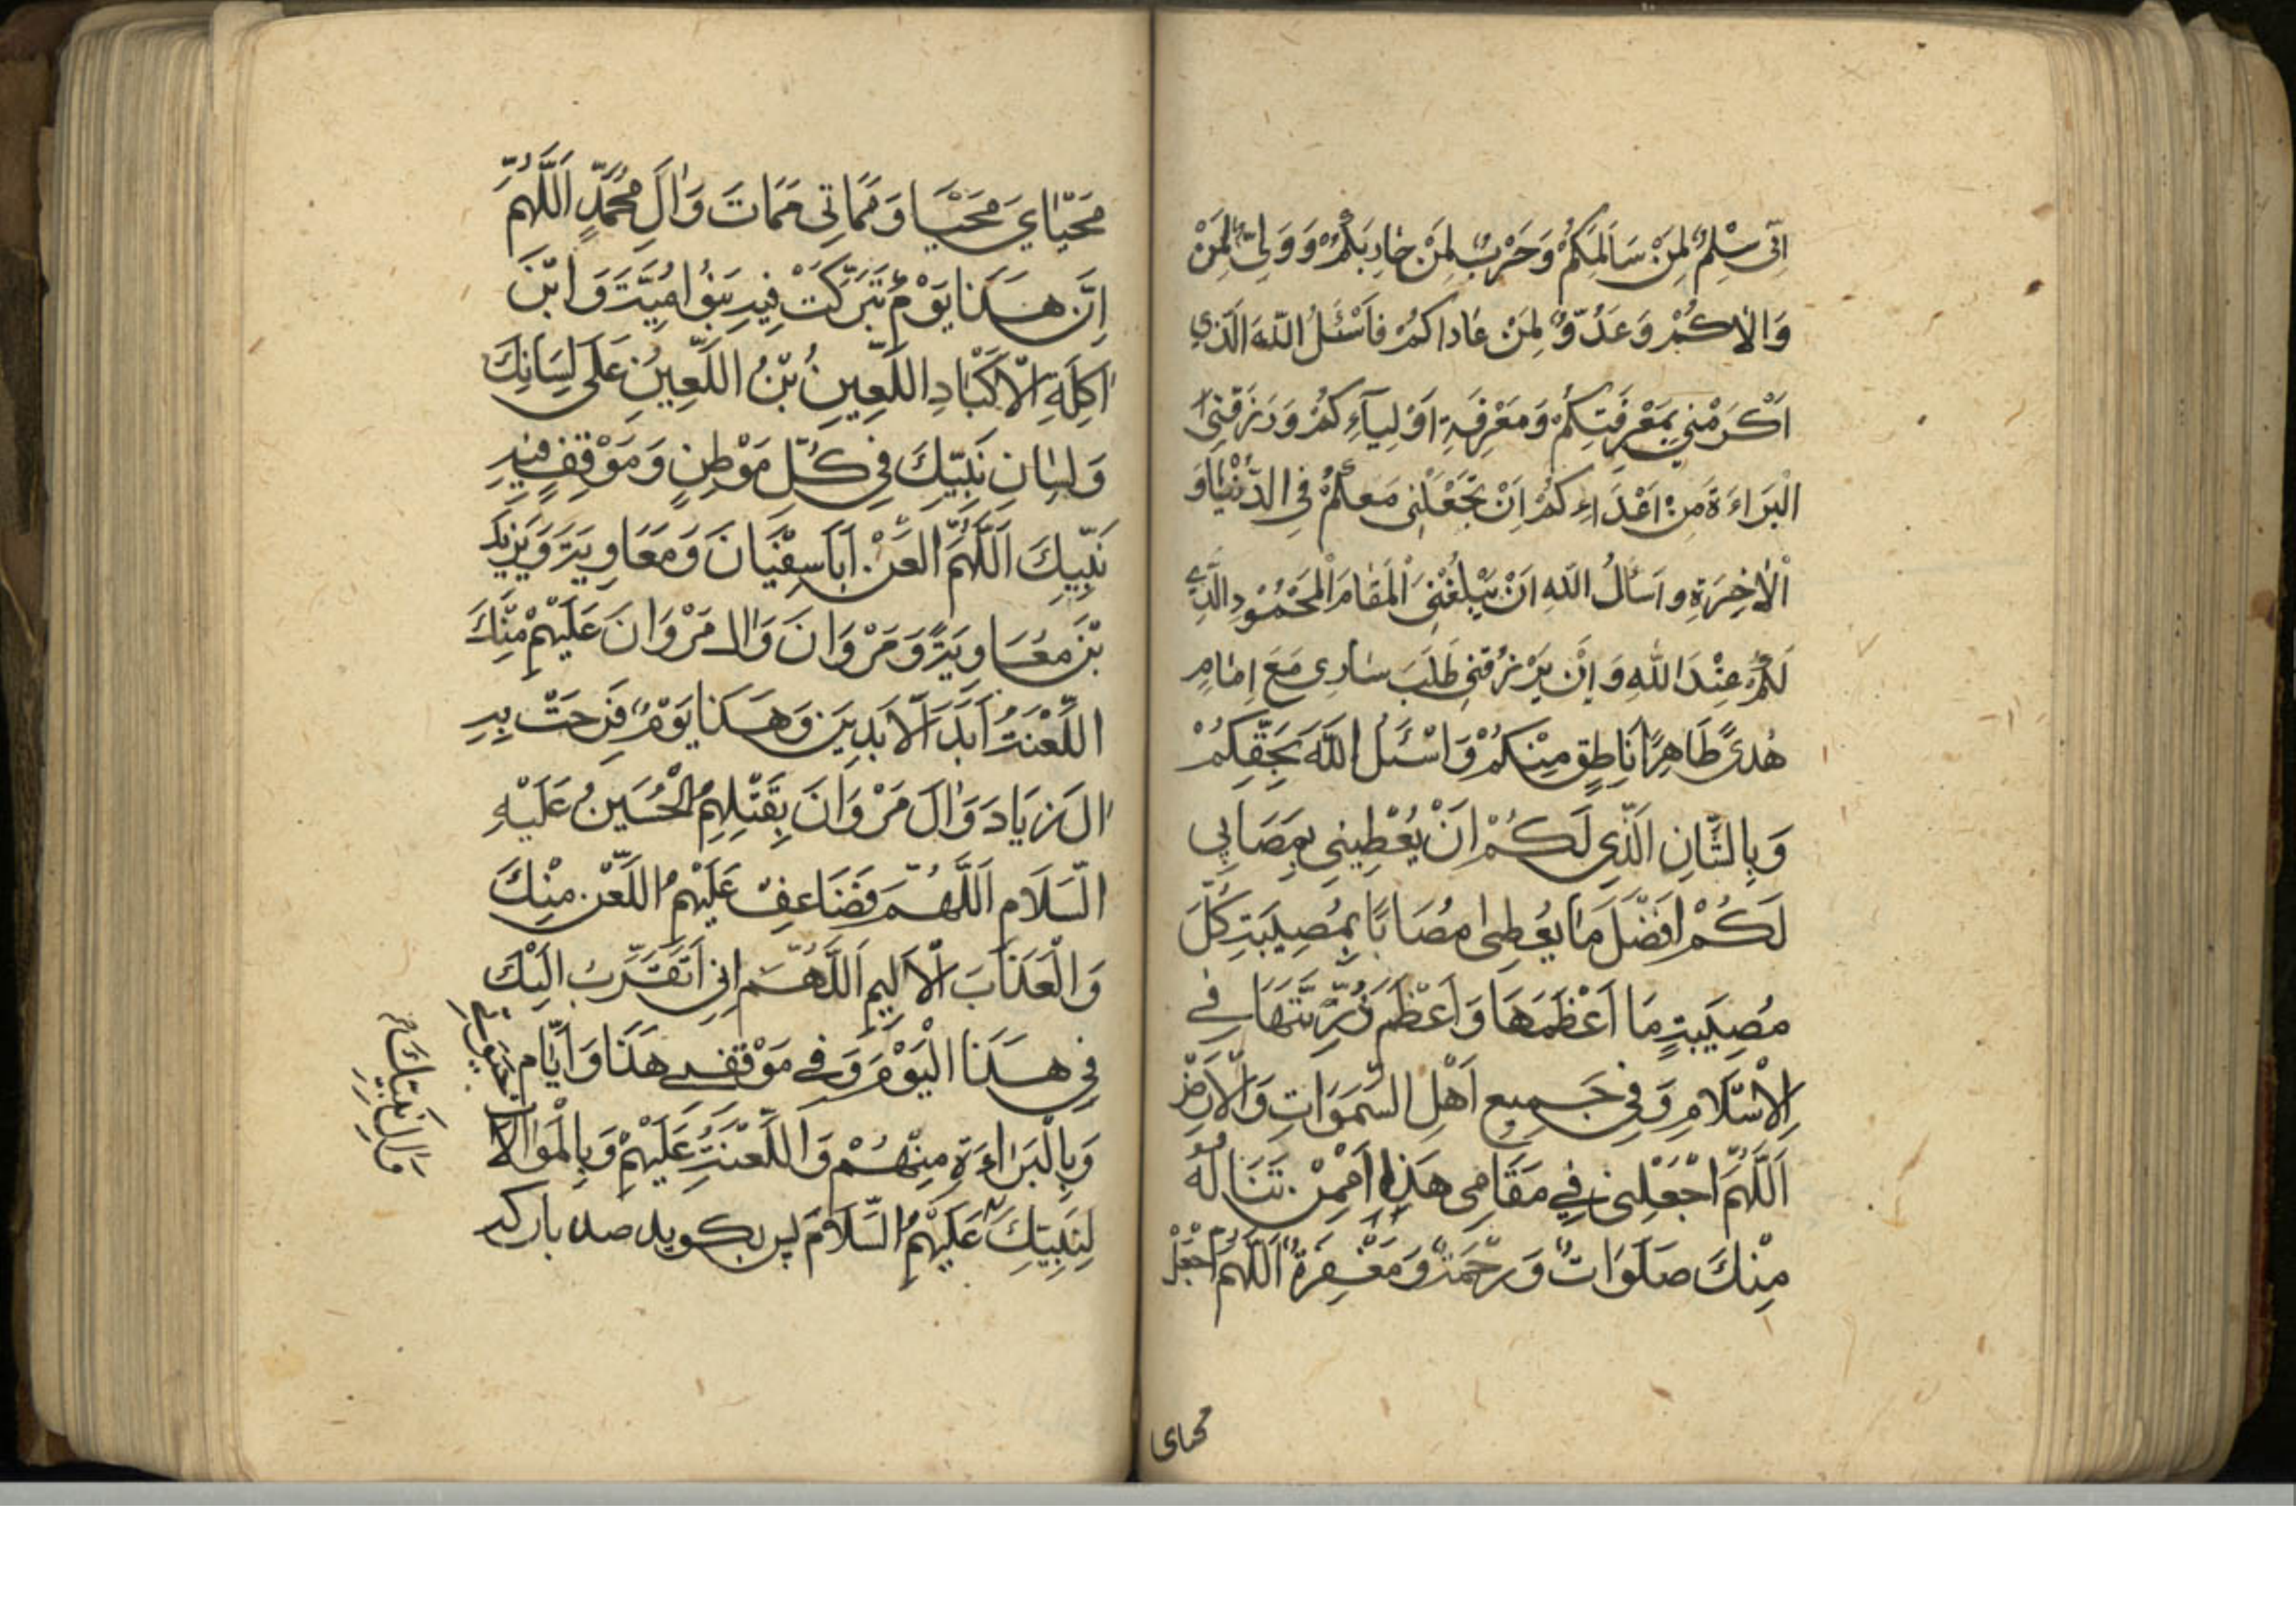 اِنّی سِلْمٌ لِمَنْ سَالَمَكُمْ وَحَرْبٌ لِمَنْ حٰارَبَكُمْ وَوَلِیٌّ لِمَنْ
وَالٰاكُمْ وَعَدُوٌّ لِمَنْ عٰاداكُمْ فَاَسْئَلُ اللّٰهَ الَّذي
اَكْرَمَني بِمَعْرِفَتِكُمْ وَمَعْرِفَةِ اَوْلِيآءِكُمْ وَرَزَقَنِی
الْبَرَاءَةَ مِنْ اَعْدَاءِكُمْ اَنْ يَجْعَلَنِی مَعَكُمْ فِی الدُّنْيٰا وَ
الْاٰخِرَةِ واَسْأَلُ اللّٰهَ اَنْ يُبَلِّغَنِیَ الْمَقٰامَ الْمَحْمُوْدِ الَّذِي
لَكُمْ عِنْدَ اللّٰهِ وَ اِنْ يَرْزُقَنِی طَلَبَ ثٰارِی مَعَ اِمٰامٍ
هُدیً ظَاهِرًا نٰاطِقٍ مِنْكُمْ وَاَسْئَلُ اللّٰهَ بِحَقِّكِمْ
وَبِالشَّانِ الَّذِی لَكُمْ اَنْ يُعْطِيَنِی بِمَصَابِی
لَكُمْ اَفْضَلَ مٰا يُعْطِی مُصَابًا بِمُصِيبَتِهِ كُلَّ
مُصِيَبةٍ مَا اَعْظَمَهَا وَاَعْظَمَ ذُرِّيَّتَهَا فِے
الْاِسْلَامِ وَفِی جَمِيعِ اَهْلِ السَّمَوَاتِ وَالْاَرْضِ
اَللّٰهُمَّ اجْعَلْنِی فِي مَقَامِی هَذِا مِمَّنْ تَنَالُهُ
مِنْكَ صَلَوَاتٌ وَرَحْمَةٌ وَمَغْفِرَةٌ اَللّٰهُمَّ اجْعَلْ
محیای
مَحْيٰايَ مَحْيَا وَمَمَاتِی مَمَاتَ وَاٰلَ مُحَمَّدٍ اَللّٰهُمَّ
اِنَّ هٰذَا يَوْمٌ تَبَرَّكَتْ فِيهِ بَنُوْ امُيَّتَ وَابْنَ
اٰكِلَةِ الْاَكْبَادِ اللَّعِينِ بْنُ اللَّعِينِ عَلَی لِسَانِكَ
وَلِسٰانِ نَبِيِّكَ فِی كُلِّ مَوْطِنٍ وَمَوْقِفٍ فِيهِ
نَبِيِّكَ اَللّٰهُمَّ الْعَنْ اَبَا سِفْيَانَ وَمَعَاوِيَةَ وَيَزِيْدَ
بْنَ مُعَاوِيَةً وَمَرْوَانَ وَاٰلِ مَرْوَانَ عَلَيْهِمْ مِنْكَ
اللَّعْنَتُ اَبَدَ الْاَبَدِيَن وَهَذَا يَوْمٌ فَرِحَتْ بِهِ
اٰل زِيَاد وَاٰلَ مَرْوَانَ بِقَتْلِهِمُ الْحُسَينُ عَلَيْهِ
السَّلَامِ اَللَّهُمَّ فَضَاعِفْ عَلَيْهِمُ اللَّعْنَ مِنْكَ
وَالْعَذَابَ الْاَليِمِ اَللَّهُمَّ اِنِی اَتَقَرَّبُ اِلَيْكَ
فِی هَذَا الْيَوْمِ وَفِے مَوْقِفِے هَذَا وَاَيّام حَيٰوتِے
وَبِالْبَرٰاءَةِ مِنْهُمْ وَاللَّعْنَتُ عَلَيْهِمْ وَبِالْمَوَالاة
لِنَبِيِّكَ عَلَيْهِمُ السَّلَامَ پس بكويد صد بار كه
وَاٰلِ نَبِيِّكَ